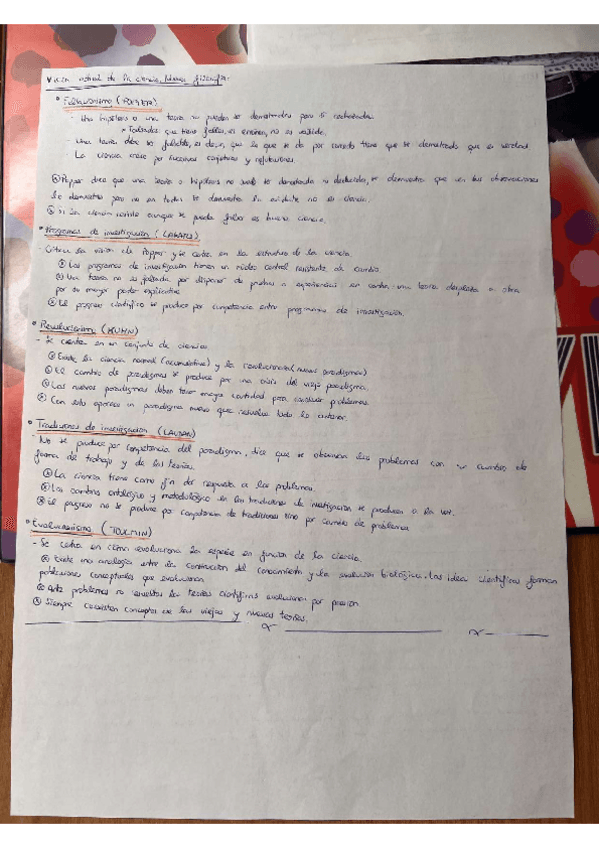 Visión actual de la ciencia. Nueva filosofía.
• Falsacionismo (POPPER)
- Una hipótesis o una teoría no pueden ser demostradas pero sí rechazada.
falsadas que tiene fallos, es errónea, no es válida.
- Una teoría debe ser falsable, es decir, que lo que se da por cierto tiene que ser demostrado que es verdad
- La ciencia crece por sucesivas conjeturas y refutaciones
Popper dice que una teoría o hipótesis no puede ser demostrada ni deducida, se demuestra que en las observaciones
lo demuestra pero no en todas se demuestra. Si no es ciencia.
Si la ciencia existe aunque se pueda fallar es buena ciencia.
• Programas de investigación (LAKATOS)
- Critica la visión de Popper y se centra en la estructura de la ciencia.
Los programas de investigación tienen un núcleo central resistente al cambio.
Una teoría no es falsada por disponer de pruebas o experiencias en contra, una teoría desplaza a otra
por su mayor poder explicativo
El progreso científico se produce por competencia entre programas de investigación.
• Revolucionismo (KUHN)
- Se centra en un conjunto de ciencias
Existe la ciencia normal (acumulativa) y la revolucionaria (nuevos paradigmas)
El cambio de paradigmas se produce por una crisis del viejo paradigma.
Los nuevos paradigmas deben tener mayor cantidad para resolver problemas.
Con esto aparece un paradigma nuevo que resuelve todo lo anterior.
• Tradiciones de investigación (LAUDAN)
- No se produce por competencia del paradigma, dice que se observan los problemas con un cambio de
forma de trabajo y de las teorías.
La ciencia tiene como fin dar respuesta a los problemas.
Los cambios ontológico y metodológico en las tradiciones de investigación se producen a la vez.
El progreso no se produce por competencia de tradiciones sino por cambio de problemas
• Evolucionismo (TOULMIN)
- Se centra en cómo evoluciona la especie en función de la ciencia.
Existe una analogía entre la construcción del conocimiento y la evolución biológica. Las idea científicas forman
poblaciones conceptuales que evolucionan.
Ante problemas no resueltos las teorías científicas evolucionan por presión
Siempre coexisten conceptos de las viejas y nuevas teorías.